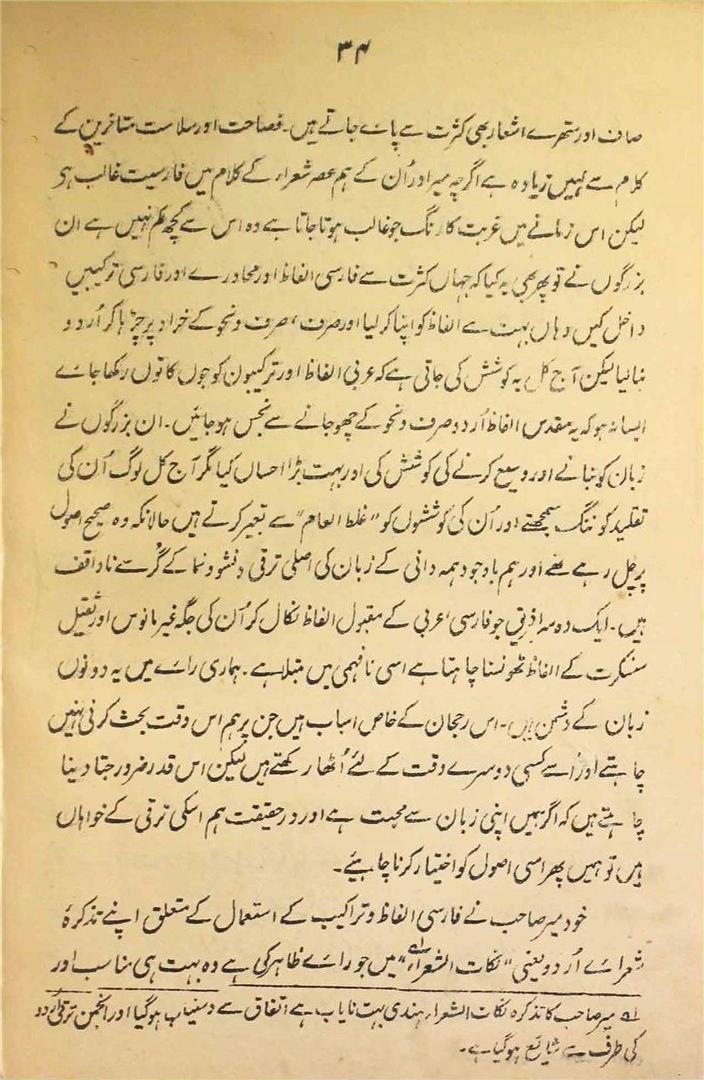 ۳۴
صاف اور ستھرے اشعار بھی کثرت سے پائے جاتے ہیں۔ فصاحت اور سلاست متاخرین کے
کلام سے کہیں زیادہ ہے اگرچہ میر اور اُن کے ہم عصر شعراء کے کلام میں فارسیت غالب ہو
لیکن اس زمانے میں عربت کا رنگ جو غالب ہوتا جاتا ہے وہ اس سے کچھ کم نہیں ہے ان
بزرگوں نے تو پھر بھی یہ کیا کہ جہاں کثرت سے فارسی الفاظ اور محاورے اور فارسی ترکیبیں
داخل کیں وہاں بہت سے الفاظ کو اپنا کر لیا اور صرف، صرف ونحو کے خراد پر چڑہا کر اُردو
بنالیا لیکن آج کل یہ کوشش کی جاتی ہے کہ عربی الفاظ اور ترکیبون کو جوں کا توں رکھا جاے
ایسا نہ ہو کہ یہ مقدس الفاظ اُردو صرف ونحو کے چھو جانے سے نجس ہو جائیں۔ ان بزرگوں نے
زبان کو بنانے اور وسیع کرنے کی کوشش کی اور بہت بڑا احساں کیا مگر آج کل لوگ اُن کی
تقلید کو ننگ سمجھتے اور اُن کی کوششوں کو "غلط العام" سے تعبیر کرتے ہیں حالانکہ وہ صحیح اصول
پر چل رہے تھے اور ہم باوجود ہمہ دانی کے زبان کی اصلی ترقی ونشو ونما کے گُر سے ناواقف
ہیں۔ ایک دوسرا فریق جو فارسی، عربی کے مقبول الفاظ نکال کر اُن کی جگہ غیر مانوس اور ثقیل
سنسکرت کے الفاظ ٹھونسنا چاہتا ہے اسی نافہمی میں مبتلا ہے۔ ہماری راے میں یہ دونوں
زبان کے دشمن ہیں۔ اس رجحان کے خاص اسباب ہیں جن پر ہم اس وقت بحث کرنی نہیں
چاہتے اور اُسے کسی دوسرے وقت کے لئے اُٹھا رکھتے ہیں لیکن اس قدر ضرور جتا دینا
چاہتے ہیں کہ اگر ہمیں اپنی زبان سے محبت ہے اور درحقیقت ہم اسکی ترقی کے خواہاں
ہیں تو ہمیں پھر اسی اصول کو اختیار کرنا چاہیئے۔
خود میر صاحب نے فارسی الفاظ وتراکیب کے استعمال کے متعلق اپنے تذکرۂ
شعراے اُردو یعنی "نکات الشعراء" میں جو راے ظاہر کی ہے وہ بہت ہی مناسب اور
لہ میر صاحب کا تذکرہ نکات الشعراء ہندی بہت نایاب ہے اتفاق سے دستیاب ہوگیا اور انجمن ترقی اُردو
کی طرف سے شایع ہوگیا ہے۔